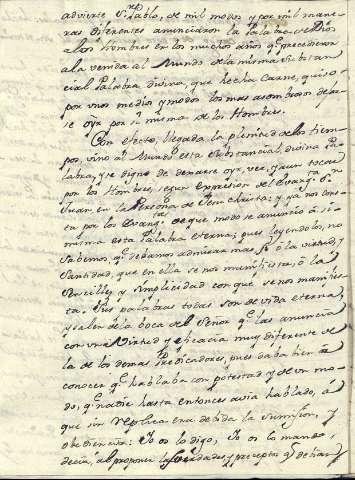 advierte S. Pablo, de mil modos y por mil mane-
ras diferentes anunciaron la Palabra de Dios
a los Hombres en los muchos años q.e precedieron
a la venida al Mundo de la misma Substan-
cial Palabra divina, que hecha Carne, quiso
por unos medios y modos los mas asombrosos dexar-
se oyr por si misma de los Hombres.
Con efecto, llegada la plenitud de los tiem-
pos, vino al Mundo esta substancial divina Pa-
labra, y se digno de dexarse oyr, ver, y aun tocar
por los Hombres, segun expresion del Evang.ta S.n
Juan en la Persona de Jesu Christo; y ya nos cons-
ta por los Evang.tas de que modo se anunció a si
misma esta Palabra eterna; pues leyendolo, no
sabemos, q.e debamos admirar mas, si ó la virtud, y
Santidad, que en ella se nos manifiesta, ó la
Sencillez y simplicidad con que se nos manifies-
ta. Sus palabras todas son de vida eterna,
y salen de la boca del Señor q.e las anuncia
con una virtud y eficacia muy diferente de
la de los demas Predicadores, pues daba bien á
conocer q.e hablaba con potestad y de un mo-
do, q.e nadie hasta entonces avia hablado, á
que sin replica era devida la sumision, y
obediencia: Yo os lo digo, Yo os lo mando,
decia, al proponer las verdades y preceptos q.e debian